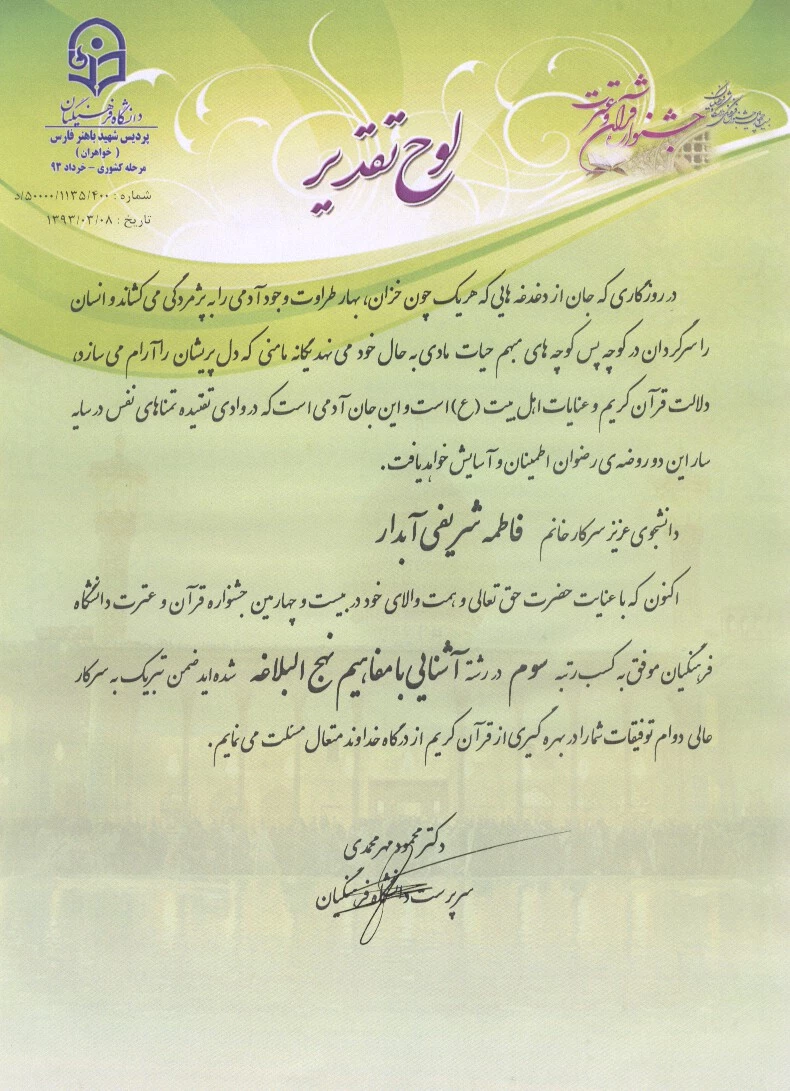 دانشگاه فرهنگیان
پردیس شهید باهنر فارس
( خواهران )
مرحله کشوری - خرداد ۹۳
شماره : ۵۰۰۰۰/۱۱۳۵/۴۰۰/د
تاریخ : ۱۳۹۳/۰۳/۰۸
جشنواره قرآن و عترت
لوح تقدیر
در روزگاری که جان از دغدغه هایی که هر یک چون خزان، بهار طراوت وجود آدمی را به پژمردگی می کشاند و انسان
را سرگردان در کوچه پس کوچه های مبهم حیات مادی به حال خود می نهد یگانه مامنی که دل پریشان را آرام می سازد،
دلالت قرآن کریم و عنایات اهل بیت (ع) است و این جان آدمی است که در وادی تفتیده تمناهای نفس در سایه
سار این دو روضه ی رضوان اطمینان و آسایش خواهد یافت.
دانشجوی عزیز سرکار خانم فاطمه شریفی آبدار
اکنون که با عنایت حضرت حق تعالی و همت والای خود در بیست و چهارمین جشنواره قرآن و عترت دانشگاه
فرهنگیان موفق به کسب رتبه سوم در رشته آشنایی با مفاهیم نهج البلاغه شده اید ضمن تبریک به سرکار
عالی دوام توفیقات شما را در بهره گیری از قرآن کریم از درگاه خداوند متعال مسئلت می نمایم.
دکتر محمود مهرمحمدی
سرپرست دانشگاه فرهنگیان